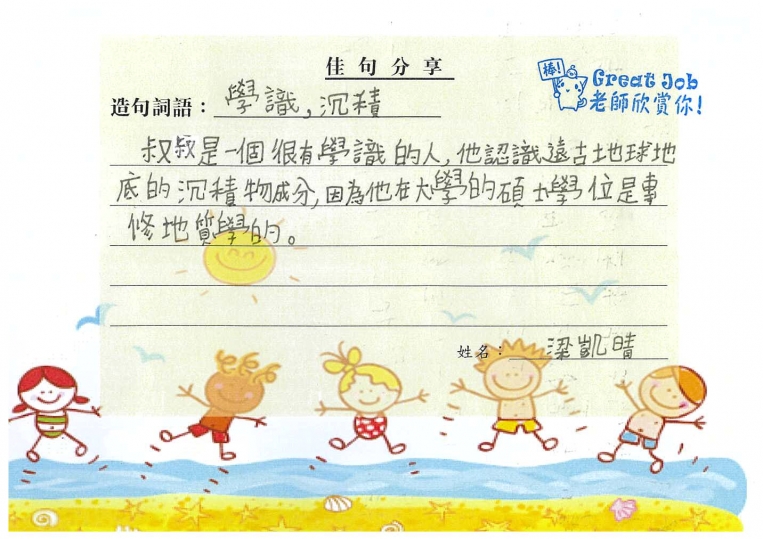 佳句分享
棒!
Great Job
老師欣賞你!
造句詞語：學識,沉積
叔叔是一個很有學識的人,他認識遠古地球地
底的沉積物成分,因為他在大學的碩士學位是專
修地質學的。
姓名：梁凱晴